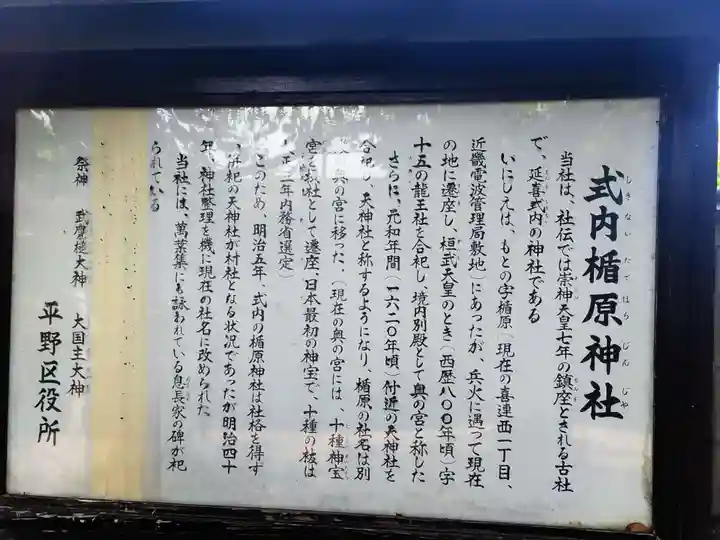 式内楯原神社
しきないたてはらじんじゃ
当社は、社伝では崇神天皇七年の鎮座とされる古社
で、延喜式内の神社である
いにしえは、もとの字楯原(現在の喜連西一丁目、
近畿電波管理局敷地)にあったが、兵火に遇って現在
の地に遷座し、桓武天皇のとき(西歴八〇〇年頃)字
十五の龍王社を合祀し、境内別殿として奥の宮と称した
さらに、元和年間(一六二〇年頃)付近の天神社を
合祀し、天神社と称するようになり、楯原の社名は別
奥の宮に移った、(現在の奥の宮には、十種神宝
宮を 社として遷座、日本最初の神宝で、十種の祓は
正三年内務省選定)
このため、明治五年、式内の楯原神社は社格を得ず
、併祀の天神社が村社となる状況であったが明治四十
年、神社整理を機に現在の社名に改められた
当社には、萬葉集にも詠われている息長家の碑が祀
られている
祭神 武甕槌大神 大国主大神
平野区役所